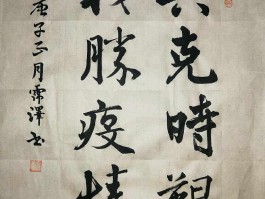 共克時艱
勝疫情
庚子正月霈澤书